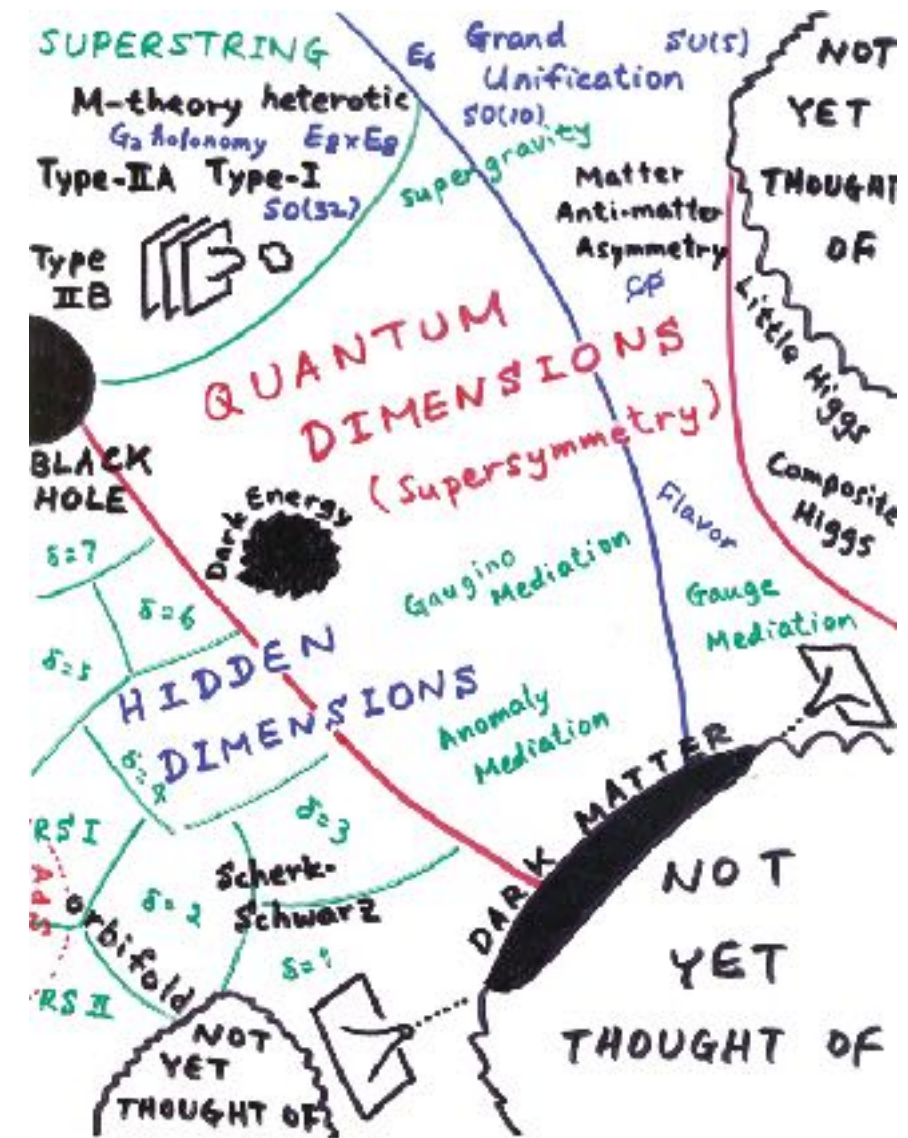 SUPERSTRING
M-theory heterotic
G₂ holonomy E8xE8
Type-IIA Type-I
SO(32)
Type
IIB
E6 Grand
Unification
SU(5)
SO(10)
supergravity
Matter
Anti-matter
Asymmetry
CP
NOT
YET
THOUGHT
OF
Little Higgs
Composite
Higgs
QUANTUM
DIMENSIONS
(Supersymmetry)
BLACK
HOLE
Dark Energy
Flavor
Gaugino
Mediation
Gauge
Mediation
Anomaly
Mediation
δ=7
δ=6
δ=5
HIDDEN
DIMENSIONS
δ=4
δ=3
RS I
AdS
orbifold
δ=2
Scherk-
Schwarz
δ=1
RS II
DARK MATTER
NOT
YET
THOUGHT OF
NOT
YET
THOUGHT OF